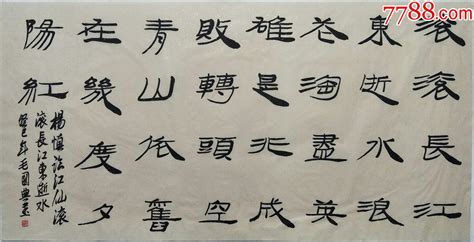 7788.com
滚滚長江
東逝水浪
花淘盡英
雄是非成
敗轉頭空
青山依舊
在幾度夕
陽紅
楊慎臨江仙滚
滚長江東逝水
癸巳秋毛國典書